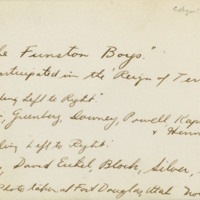 e Funston Boys."
articipated in the "Reign of Ter
ding Left to Right.
, Greenberg, Downey, Powell, Kap
+ Henn
ding Left to Right.
, David Eichel, Block, Silver,
Photo taken at Fort Douglas, Utah Nov